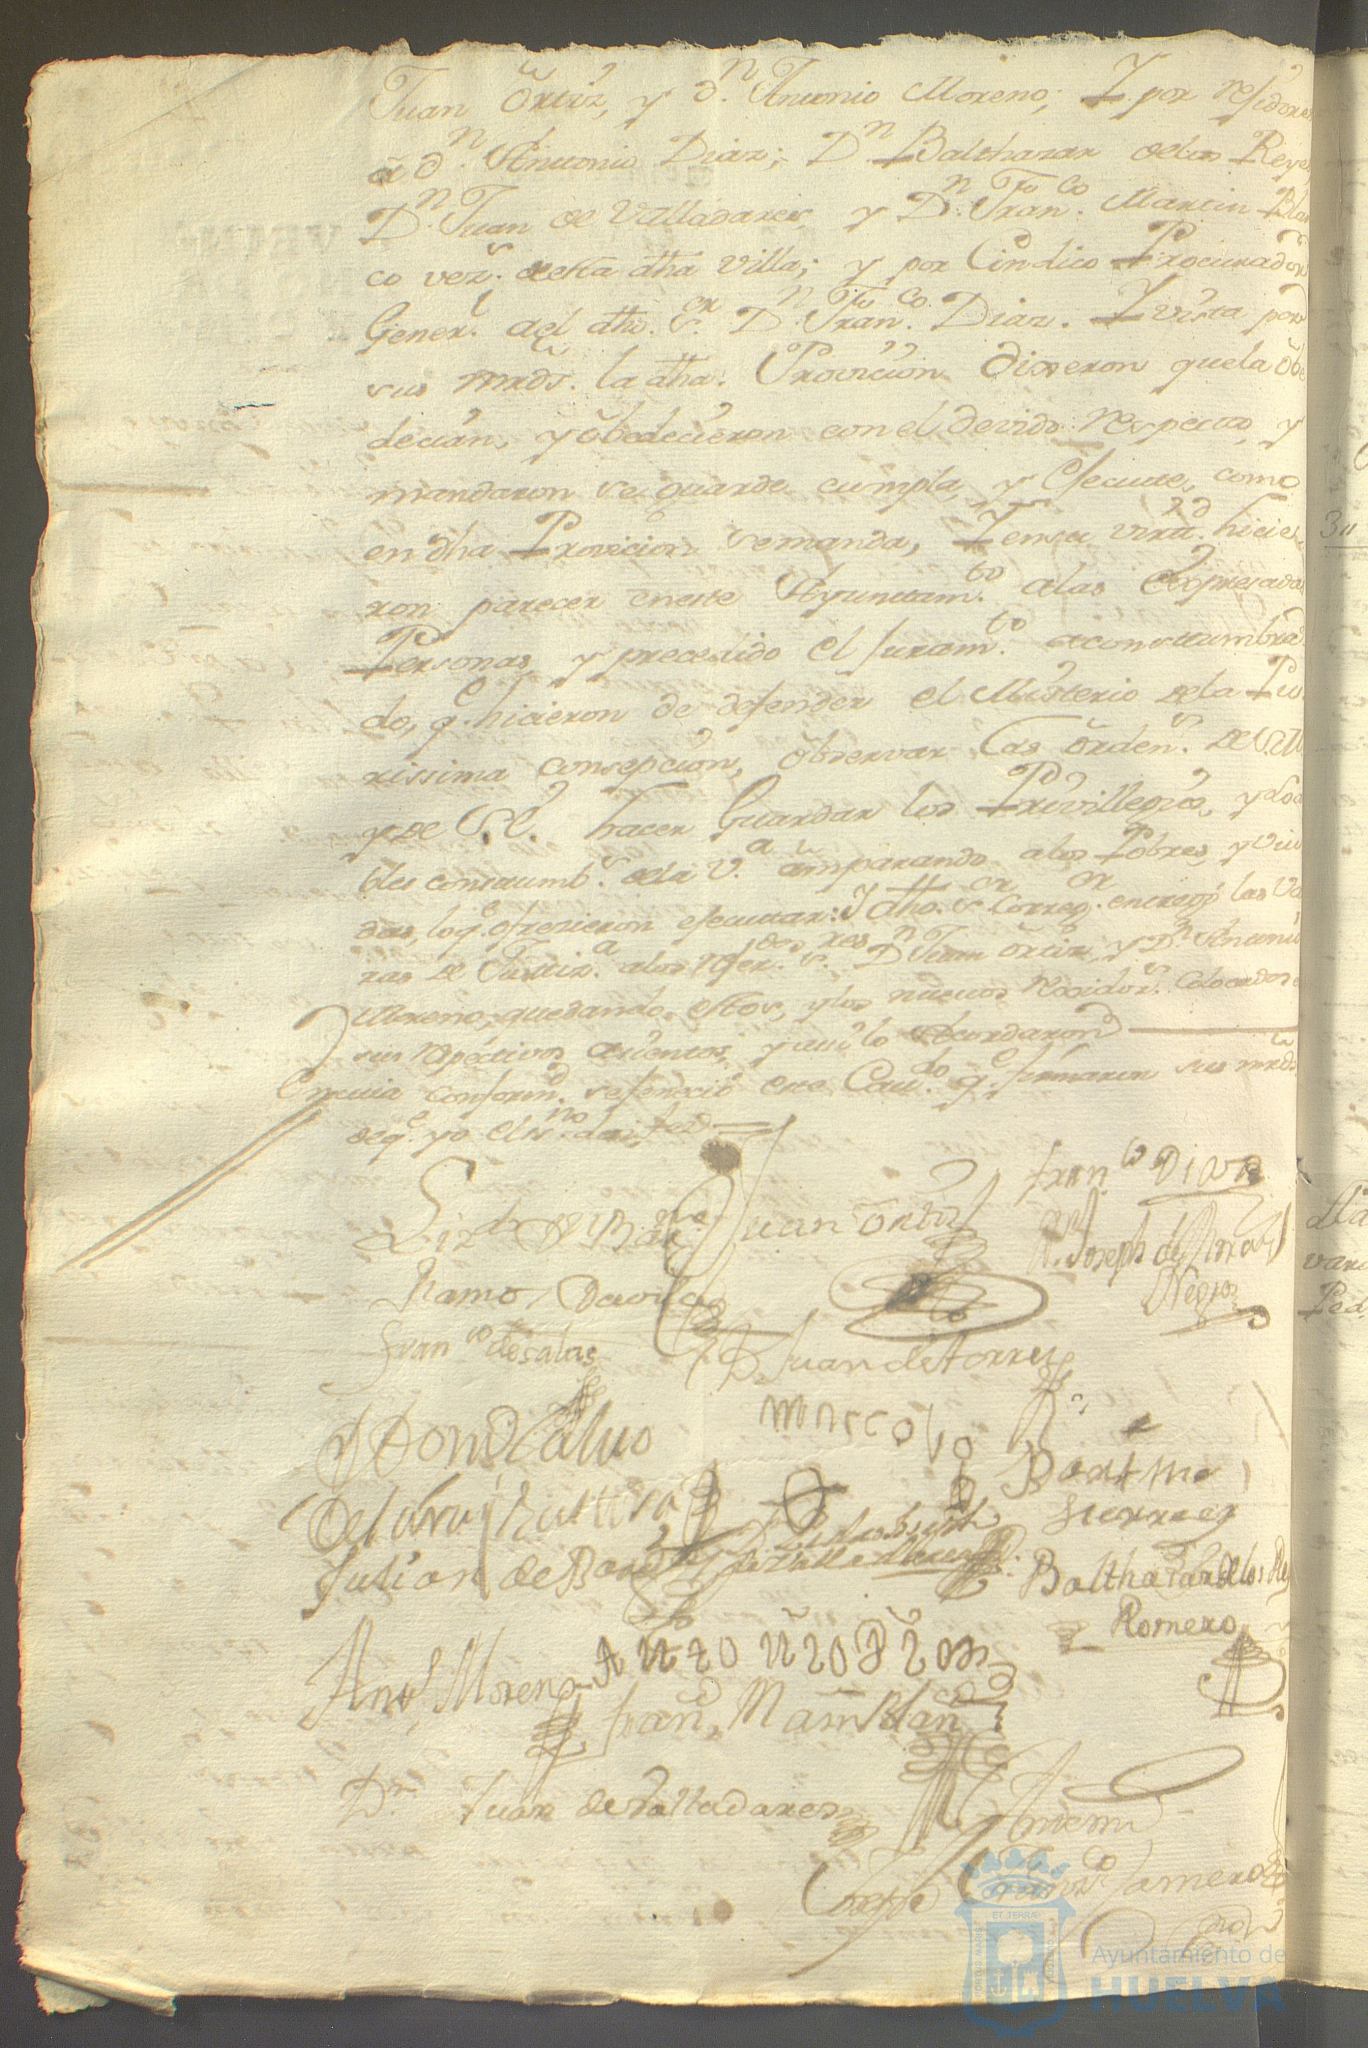 Juan Ortiz, y Dn. Antonio Moreno; Y por Residores
a dn. Antonio Diaz; Dn. Balthazar delos Reyes
Dn. Juan de Valladares, y Dn. Franco. Martin Blan
co vezs. desta dha villa; y por Cindico Procurador
Generl. ael dho. Sr. Dn. Franco. Diaz. Y vista por
sus mrds. la dha. Provicion Dixeron que la Obe
decian, y Obedecieron con el devido respecto, y
mandaron se guarde cumpla, y Execute, como
en dha Provicion se manda, Y en su virtd. hicie
ron parecer en este Ayuntamto. alas Expresadas
Personas, y precedido el Juramto. acosttumbra
do, q. hicieron de defender el Misterio dela Pu
rissima Consepcion, Observar las Ordens. de S.M.
y de S.E. hacer Guardar los Privillegios, y Loa
bles costtumbs. dela Va. amparando alos Pobres, y Viu
das, lo q. ofrezieron efecutar: Y dho. Sr. Corregr. entregó las Va
ras de Justiza. alos referdos. Sres. Dn. Juan Ortiz, y Dn. Antonio
Moreno, quedando estos, y los nuevos Rexidors. Colocados en
sus respectivos asientos, y assi lo Acordaron
En cuia conformd. se fenecio este Cavdo. q. firmaron sus mrds
de q. yo el Esno. doi fed
Lizdo. Dn.
Juan Ortiz
Franco Diaz
Dn. Joseph de
Negro
Ramos Davila
Franco de Salas
D Juan de Torres
Marcolo
Baltme
Suarez
Julian de
Balthazar delos Rey
Romero
Anto. Moreno
Antonio Dias
Fran. Martin Blan
Dn. Juan de Valladares
Antemi
Joseph
Ayuntamiento de
HUELVA